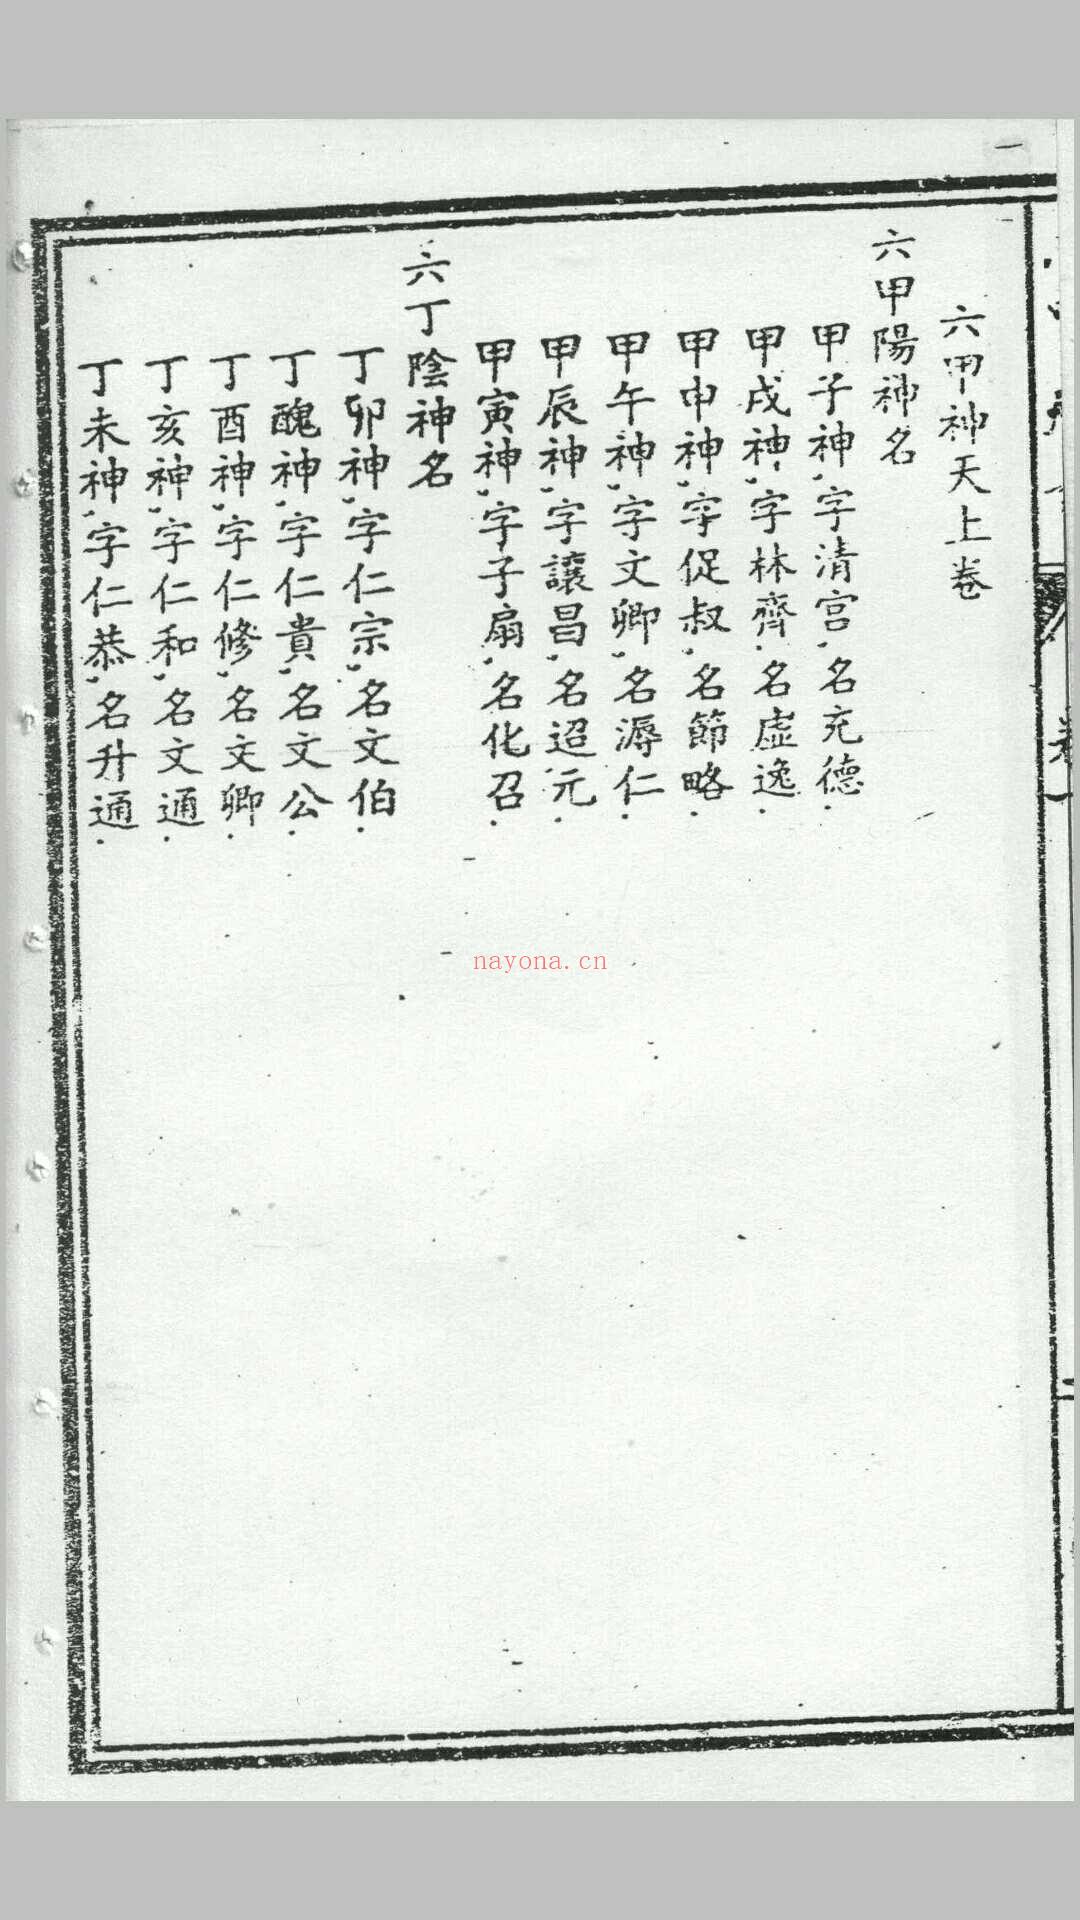 六甲神天上卷
六甲陽神名
甲子神,字清宮,名充德.
甲戌神,字林齊,名虛逸.
甲申神,字促叔,名節略.
甲午神,字文卿,名溽仁.
甲辰神,字讓昌,名迢元.
甲寅神,字子扇,名化召.
六丁陰神名
丁卯神,字仁宗,名文伯.
丁醜神,字仁貴,名文公.
丁酉神,字仁修,名文卿.
丁亥神,字仁和,名文通.
丁未神,字仁恭,名升通.
nayona.cn